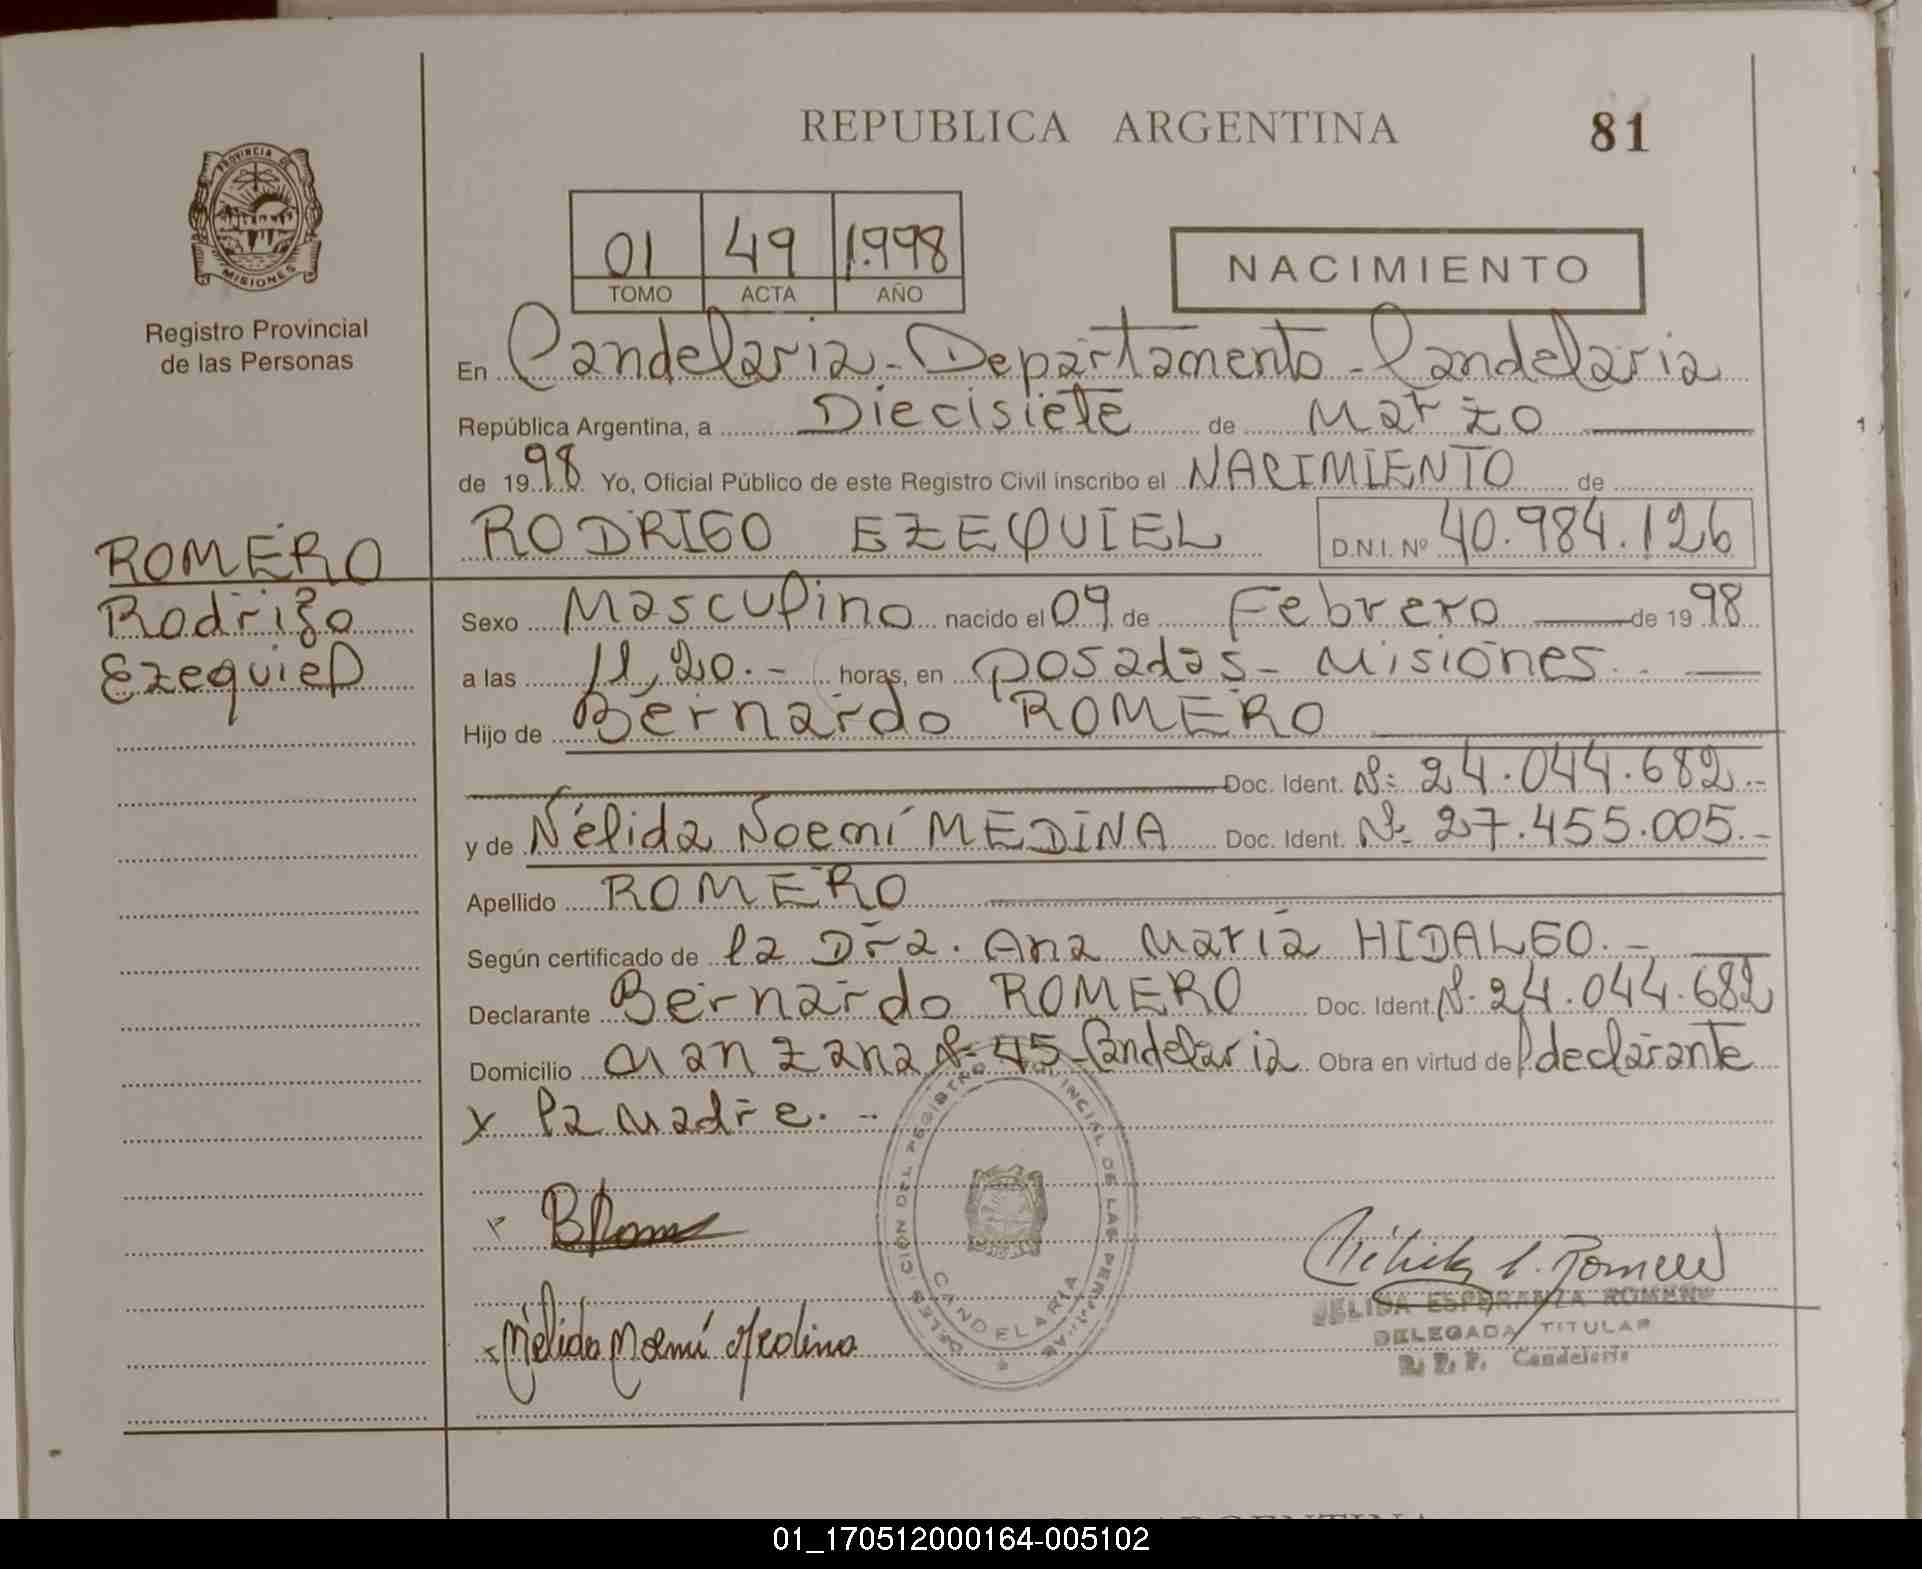 REPUBLICA ARGENTINA 81
PROVINCIA DE
MISIONES
Registro Provincial
de las Personas
01 49 1.998
TOMO ACTA AÑO
NACIMIENTO
En Candelaria - Departamento - Candelaria
República Argentina, a Diecisiete de Marzo
de 1998 Yo, Oficial Público de este Registro Civil inscribo el NACIMIENTO de
RODRIGO EZEQUIEL D.N.I. Nº 40.984.126
ROMERO
Rodrigo
Ezequiel
Sexo Masculino nacido el 09 de Febrero de 1998
a las 11,20.- horas, en Posadas - Misiones
Hijo de Bernardo ROMERO
Doc. Ident. Nº 24.044.682.-
y de Nélida Noemí MEDINA Doc. Ident. Nº 27.455.005.-
Apellido ROMERO
Según certificado de la Dra. Ana María HIDALGO.-
Declarante Bernardo ROMERO Doc. Ident. Nº 24.044.682
Domicilio Manzana Nº 45 - Candelaria Obra en virtud de declarante
y la Madre.-
Nélida Noemí Medina
CANDELARIA
ESPERANZA ROMERO
DELEGADA TITULAR
R. P. P. Candelaria
01_170512000164-005102